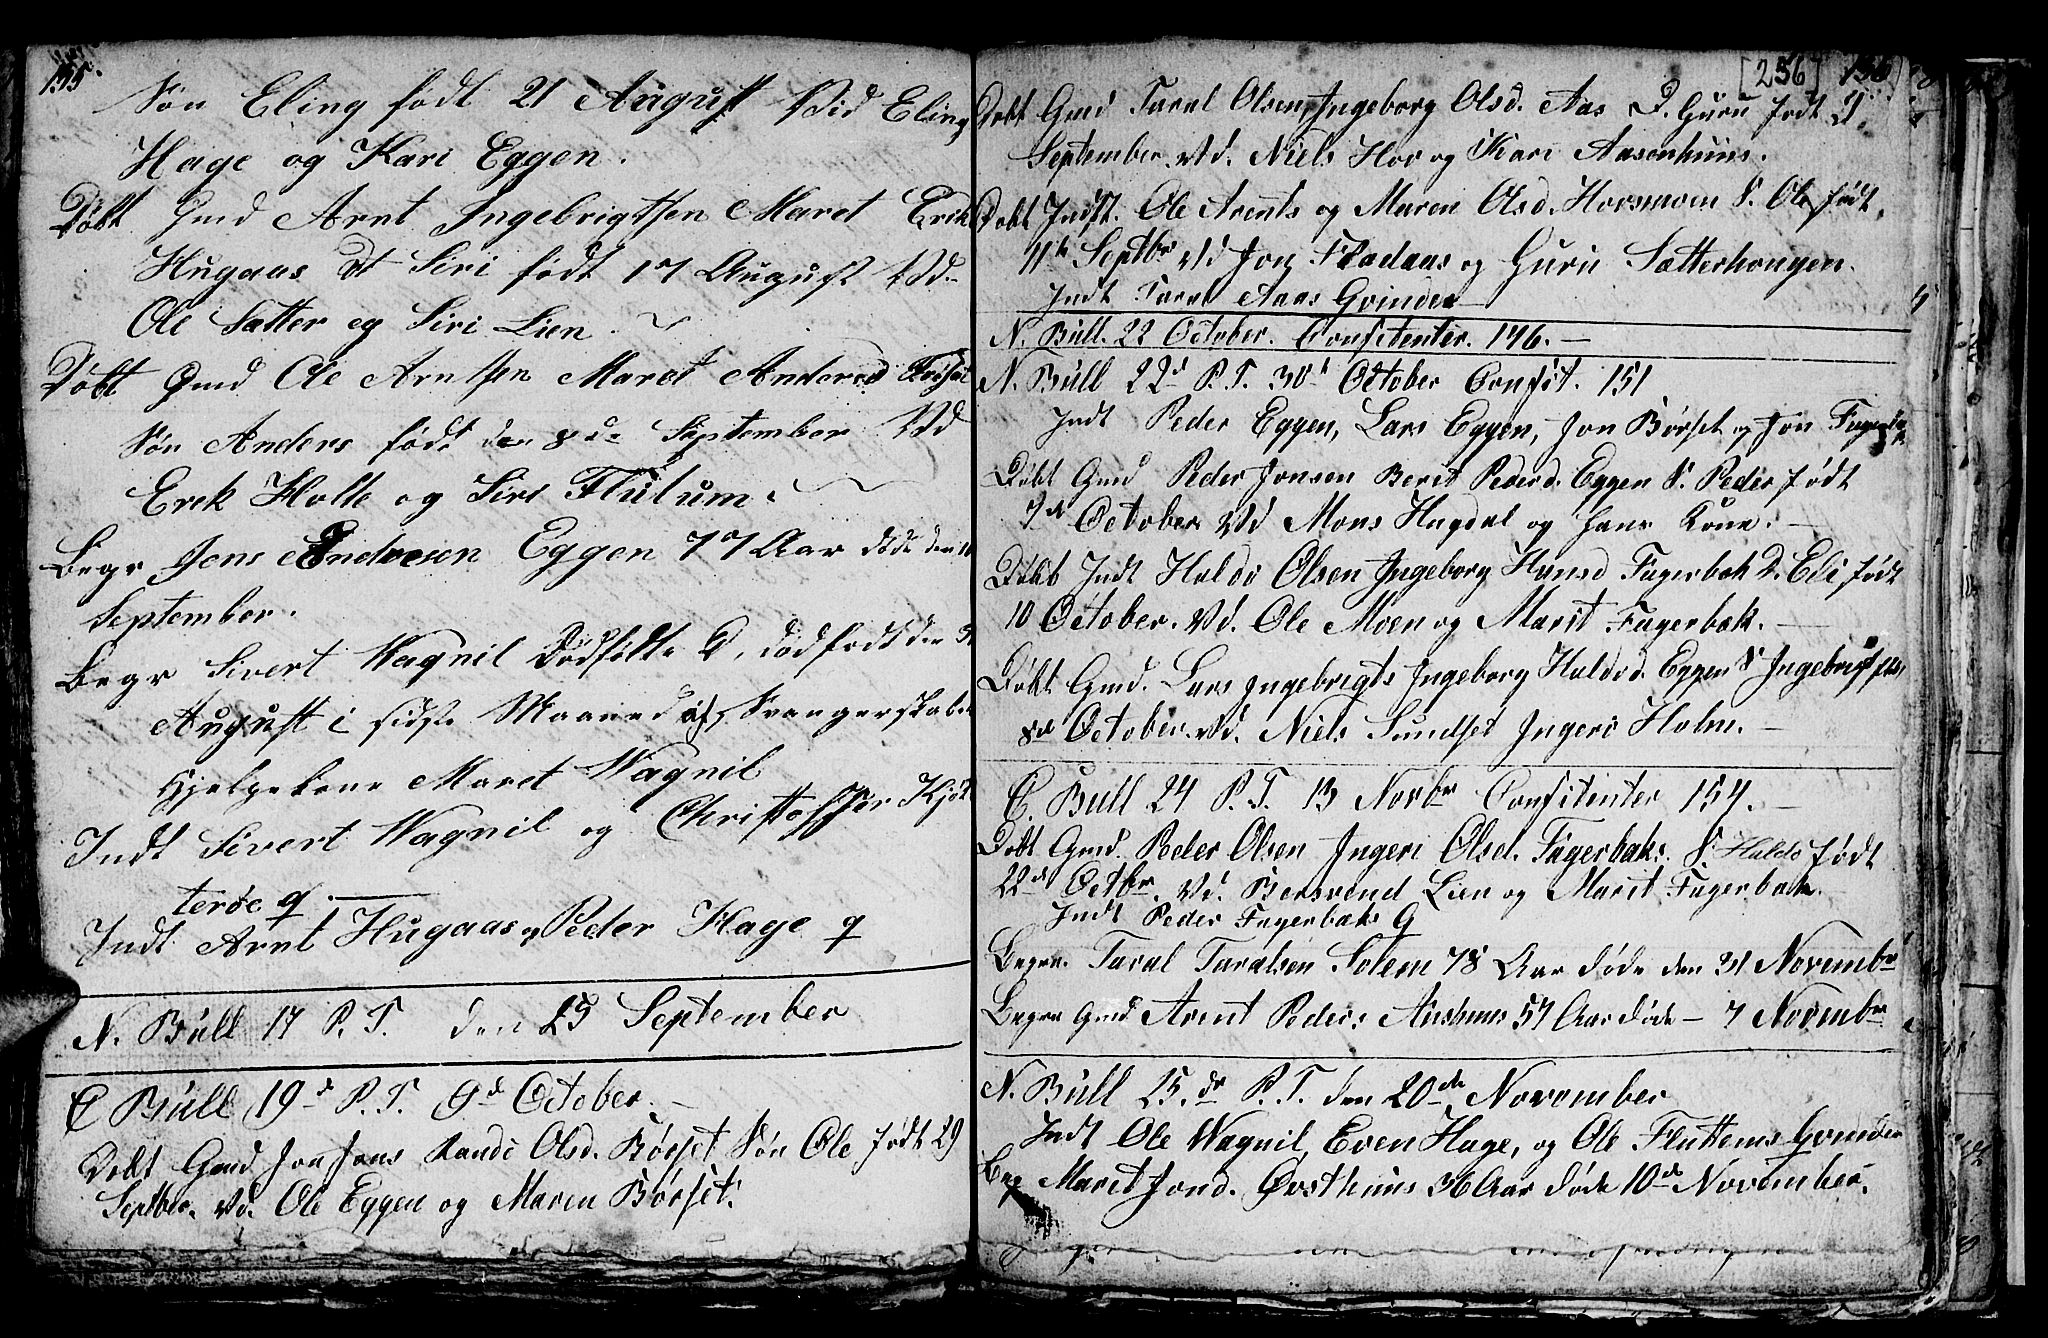 155.
Søn Eling født 21 August Vid Eling
Hage og Kari Eggen.
Døbt Gmd Arnt Ingebrigtsen Maret Erik
Hugaas Dt Siri født 17 August Vd.
Ole Sætter og Siri Lien.
Døbt Gmd Ole Arntsen Maret Andersd
Søn Anders født den 8de September Vd
Erek Holte og Siri Flutum.
Begr Jens Andersen Eggen 77 Aar døde den
September.
Begr Sivert Wagnil Dødfødte D, dødfødt den
August i sidste Maaned af Svangerskabet
Hjelpekone Maret Wagnil
Indt Sivert Wagnil og Christoffer Kjøt
terøe q.
Indt Arnt Hugaas og Peder Hage q
N. Bull 17 P. T. den 25 September
E Bull 19d P. T. 9d October.
Døbt Gmd Jon Jons Randi Olsd. Børset Søn Ole født 29
Septbr. Vd. Ole Eggen og Maren Børset.
[256] 156
Døbt Gmd Taral Olsen, Ingeborg Olsd. Aas D. Guru født 2.
September. Vd. Niels Hov og Kari Aasenhuus.
Døbt Indst. Ole Arents og Maren Olsd. Horsmoen S. Ole født.
11te Septbr Vd Jon Fladaas og Guru Sætterhougen.
Indt Taral Aaas Qvinde
N. Bull. 22 October. Confitenter. 146.
N. Bull 22d P. T. 30d October Confit. 151
Indt Peder Eggen, Lars Eggen, Jon Børset og Jon
Døbt Gmd Peder Jonsen Berit Pedersd. Eggen S. Peder født
7de October Vd Mons Hugdal og hans Kone.
Døbt Indt Haldo Olsen Ingeborg Hansd Fagerbæk D. Eli født
10 October. Vd. Ole Moen og Marit Fagerbæk.
Døbt Gmd. Lars Ingebrigts Ingeborg Haldsd. Eggen S Ingebrigt
8de October. Vd. Niels Sundset Ingeri Holm.
E. Bull 24 P. T. 13 Novbr Confitenter 154.
Døbt Gmd. Peder Olsen Ingeri Olsd. Fagerbæks. S. Haldo født
22de Octbr. Vd. Bersvend Lien og Marit Fagerbæk
Indt Peder Fagerbæks Q
Begra. Taral Taralsen Solem 78 Aar døde den 31 Novembr
Begra Gmd Arent Peders Aashuus 57 Aar døde 7 Novembr
N. Bull 25.de P. T. den 20de November
Indt Ole Wagnil, Even Hage, og Ole Fluttems Qvinder
Beg Marit Jond. Øvsthuus 36 Aar døde 10de November.